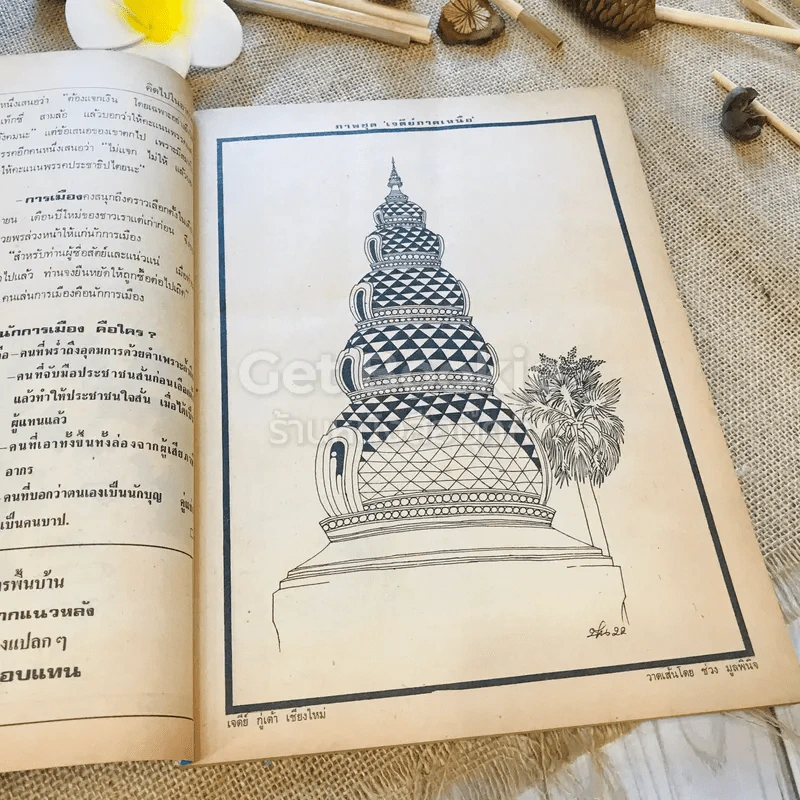 คิดไปในย
หนึ่งเสนอว่า "ต้องแจกเงิน โดยเฉพาะอย่
แท็กซี่ สามล้อ แล้วบอกว่าให้คะแนนพรรค
สังคมนะ" แต่ข้อเสนอของเขาตกไป เพราะมี
รรคอีกคนหนึ่งเสนอว่า "ไม่แจก ไม่ให้ แล้ว
ให้คะแนนพรรคประชาธิปไตยนะ"
-การเมืองคงสนุกถึงคราวเลือกตั้งใน
ายน เดือนปีใหม่ของชาวเราแต่เก่าก่อน
วยพรล่วงหน้าให้แก่นักการเมือง
"สำหรับท่านผู้ซื่อสัตย์และแน่วแน่
ไปแล้ว ท่านจงยืนหยัดให้ถูกซื้อต่อไปเถิด"
คนเล่นการเมืองคือนักการเมือง
นักการเมือง คือใคร ?
คือ-คนที่พร่ำถึงอุดมการด้วยคำเพราะ
-คนที่จับมือประชาชนสั่นก่อนเลือก
แล้วทำให้ประชาชนใจสั่น เมื่อได้เป็น
ผู้แทนแล้ว
-คนที่เอาทั้งขึ้นทั้งล่องจากผู้เสียภา
อากร
-คนที่บอกว่าตนเองเป็นนักบุญ
เป็นคนบาป.
รพื้นบ้าน
ากแนวหลัง
งแปลก ๆ
อบแทน
ภาพชุด 'เจดีย์ภาคเหนือ'
22
เจดีย์ กู่เต้า เชียงใหม่
วาดเส้นโดย ช่วง มูลพินิจ